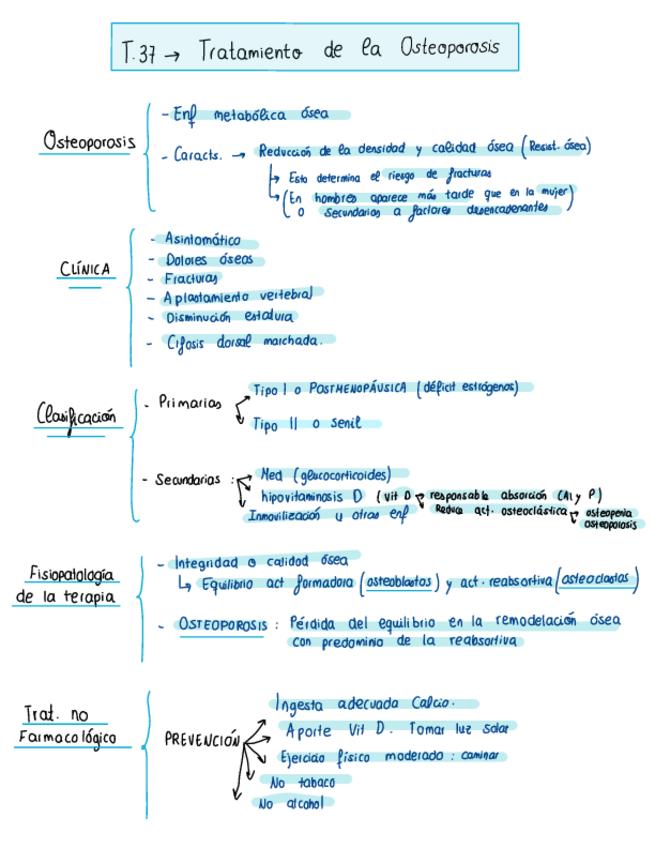 T.37 → Tratamiento de la Osteoporosis
Osteoporosis
- Enf metabólica ósea
- Caracts. → Reducción de la densidad y calidad ósea (Resist. ósea)
↳ Esto determina el riesgo de fracturas
↳ (En hombres aparece más tarde que en la mujer)
o secundarios a factores desencadenantes
CLÍNICA
- Asintomático
- Dolores óseos
- Fracturas
- Aplastamiento vertebral
- Disminución estatura
- Cifosis dorsal marchada.
Clasificación
- Primarias
Tipo I o POSTMENOPÁUSICA (déficit estrógenos)
Tipo II o senil
- Secundarias :
Med (glucocorticoides)
hipovitaminosis D (vit D → responsable absorción CAl y P)
Reduce act. osteoclástica → osteopenia
osteoporosis
Inmovilización u otras enf
Fisiopatología
de la terapia
- Integridad o calidad ósea
↳ Equilibrio act formadora (osteoblastos) y act. reabsortiva (osteoclastos)
- OSTEOPOROSIS : Pérdida del equilibrio en la remodelación ósea
con predominio de la reabsortiva
Trat. no
Farmacológico
PREVENCIÓN
Ingesta adecuada Calcio.
Aporte Vit D. Tomar luz solar
Ejercicio físico moderado : caminar
No tabaco
No alcohol